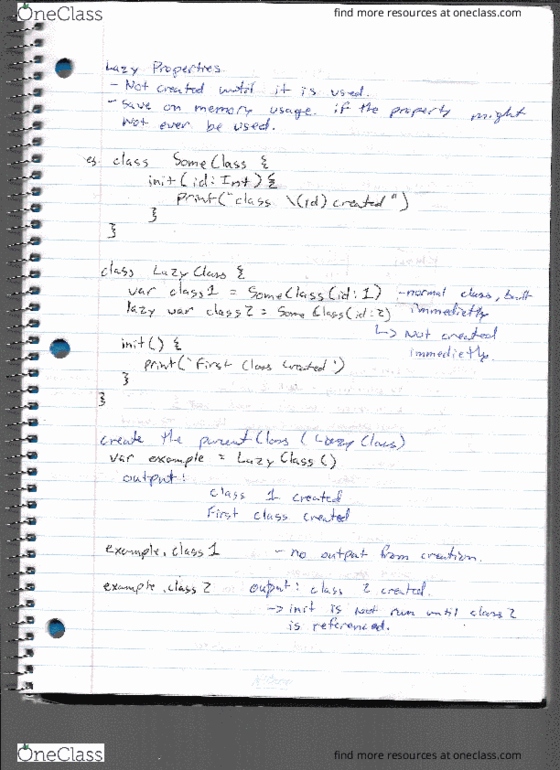 OneClass
find more resources at oneclass.com
Lazy Properties
- Not created until it is used.
- Save on memory usage. if the property might
not ever be used.
eg. class SomeClass {
init(id: Int) {
print("class \(id) created")
}
}
class LazyClass {
var class1 = SomeClass(id: 1) - normal class, built
immedietly
lazy var class2 = SomeClass(id: 2)
↳ Not created
immedietly.
init() {
print("First Class created")
}
}
create the parent Class (Lazy Class)
var example = LazyClass()
output:
class 1 created
First class created
example.class1 - no output from creation.
example.class2 output: class 2 created.
-> init is not run until class2
is referenced.
OneClass
find more resources at oneclass.com